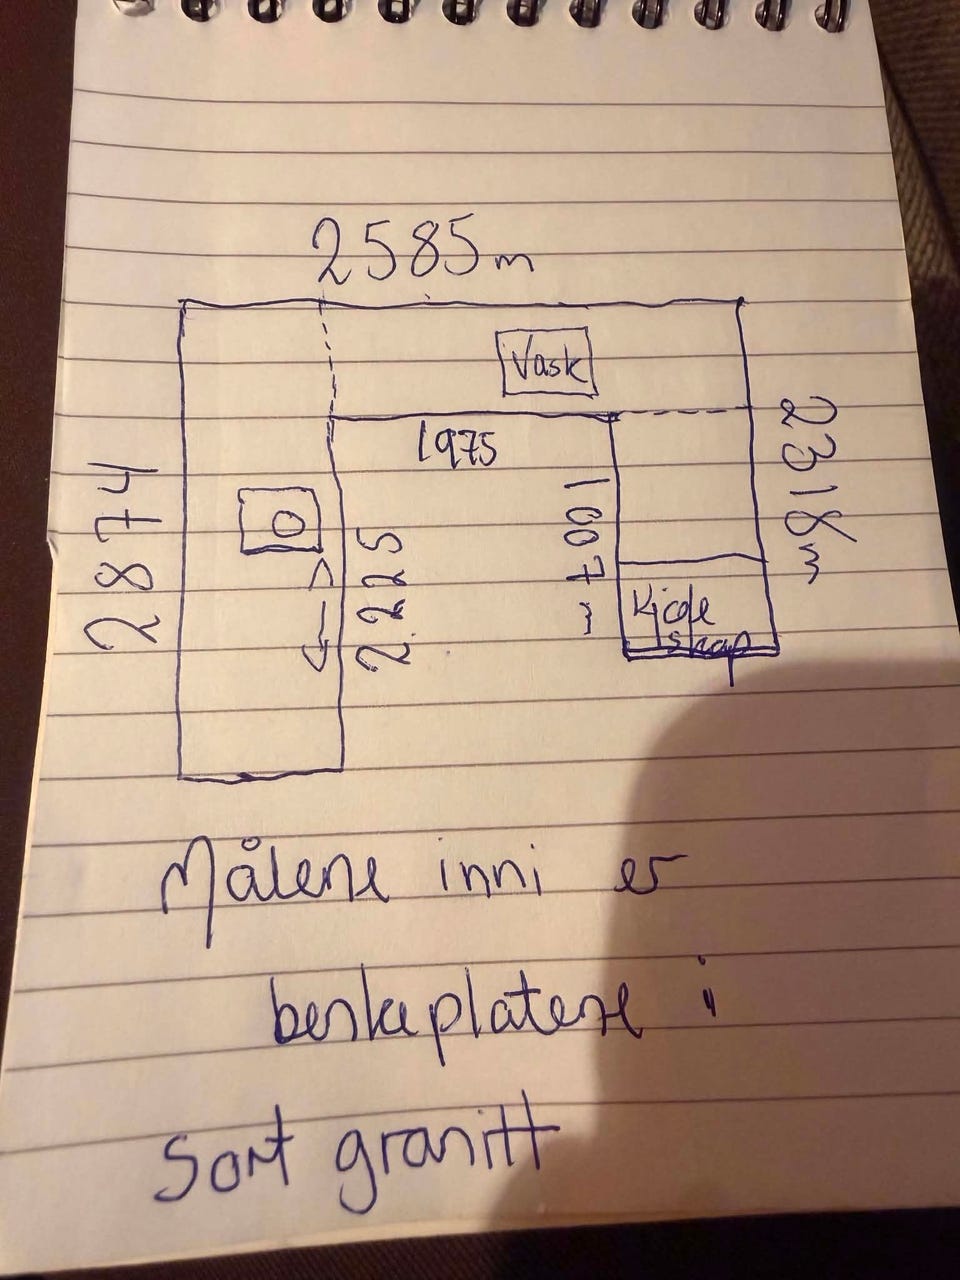 2585m
Vask
1975
2874
2225
1007m
2318m
Kjøle
skap
Målene inni er
benkeplatene i
Sort granitt